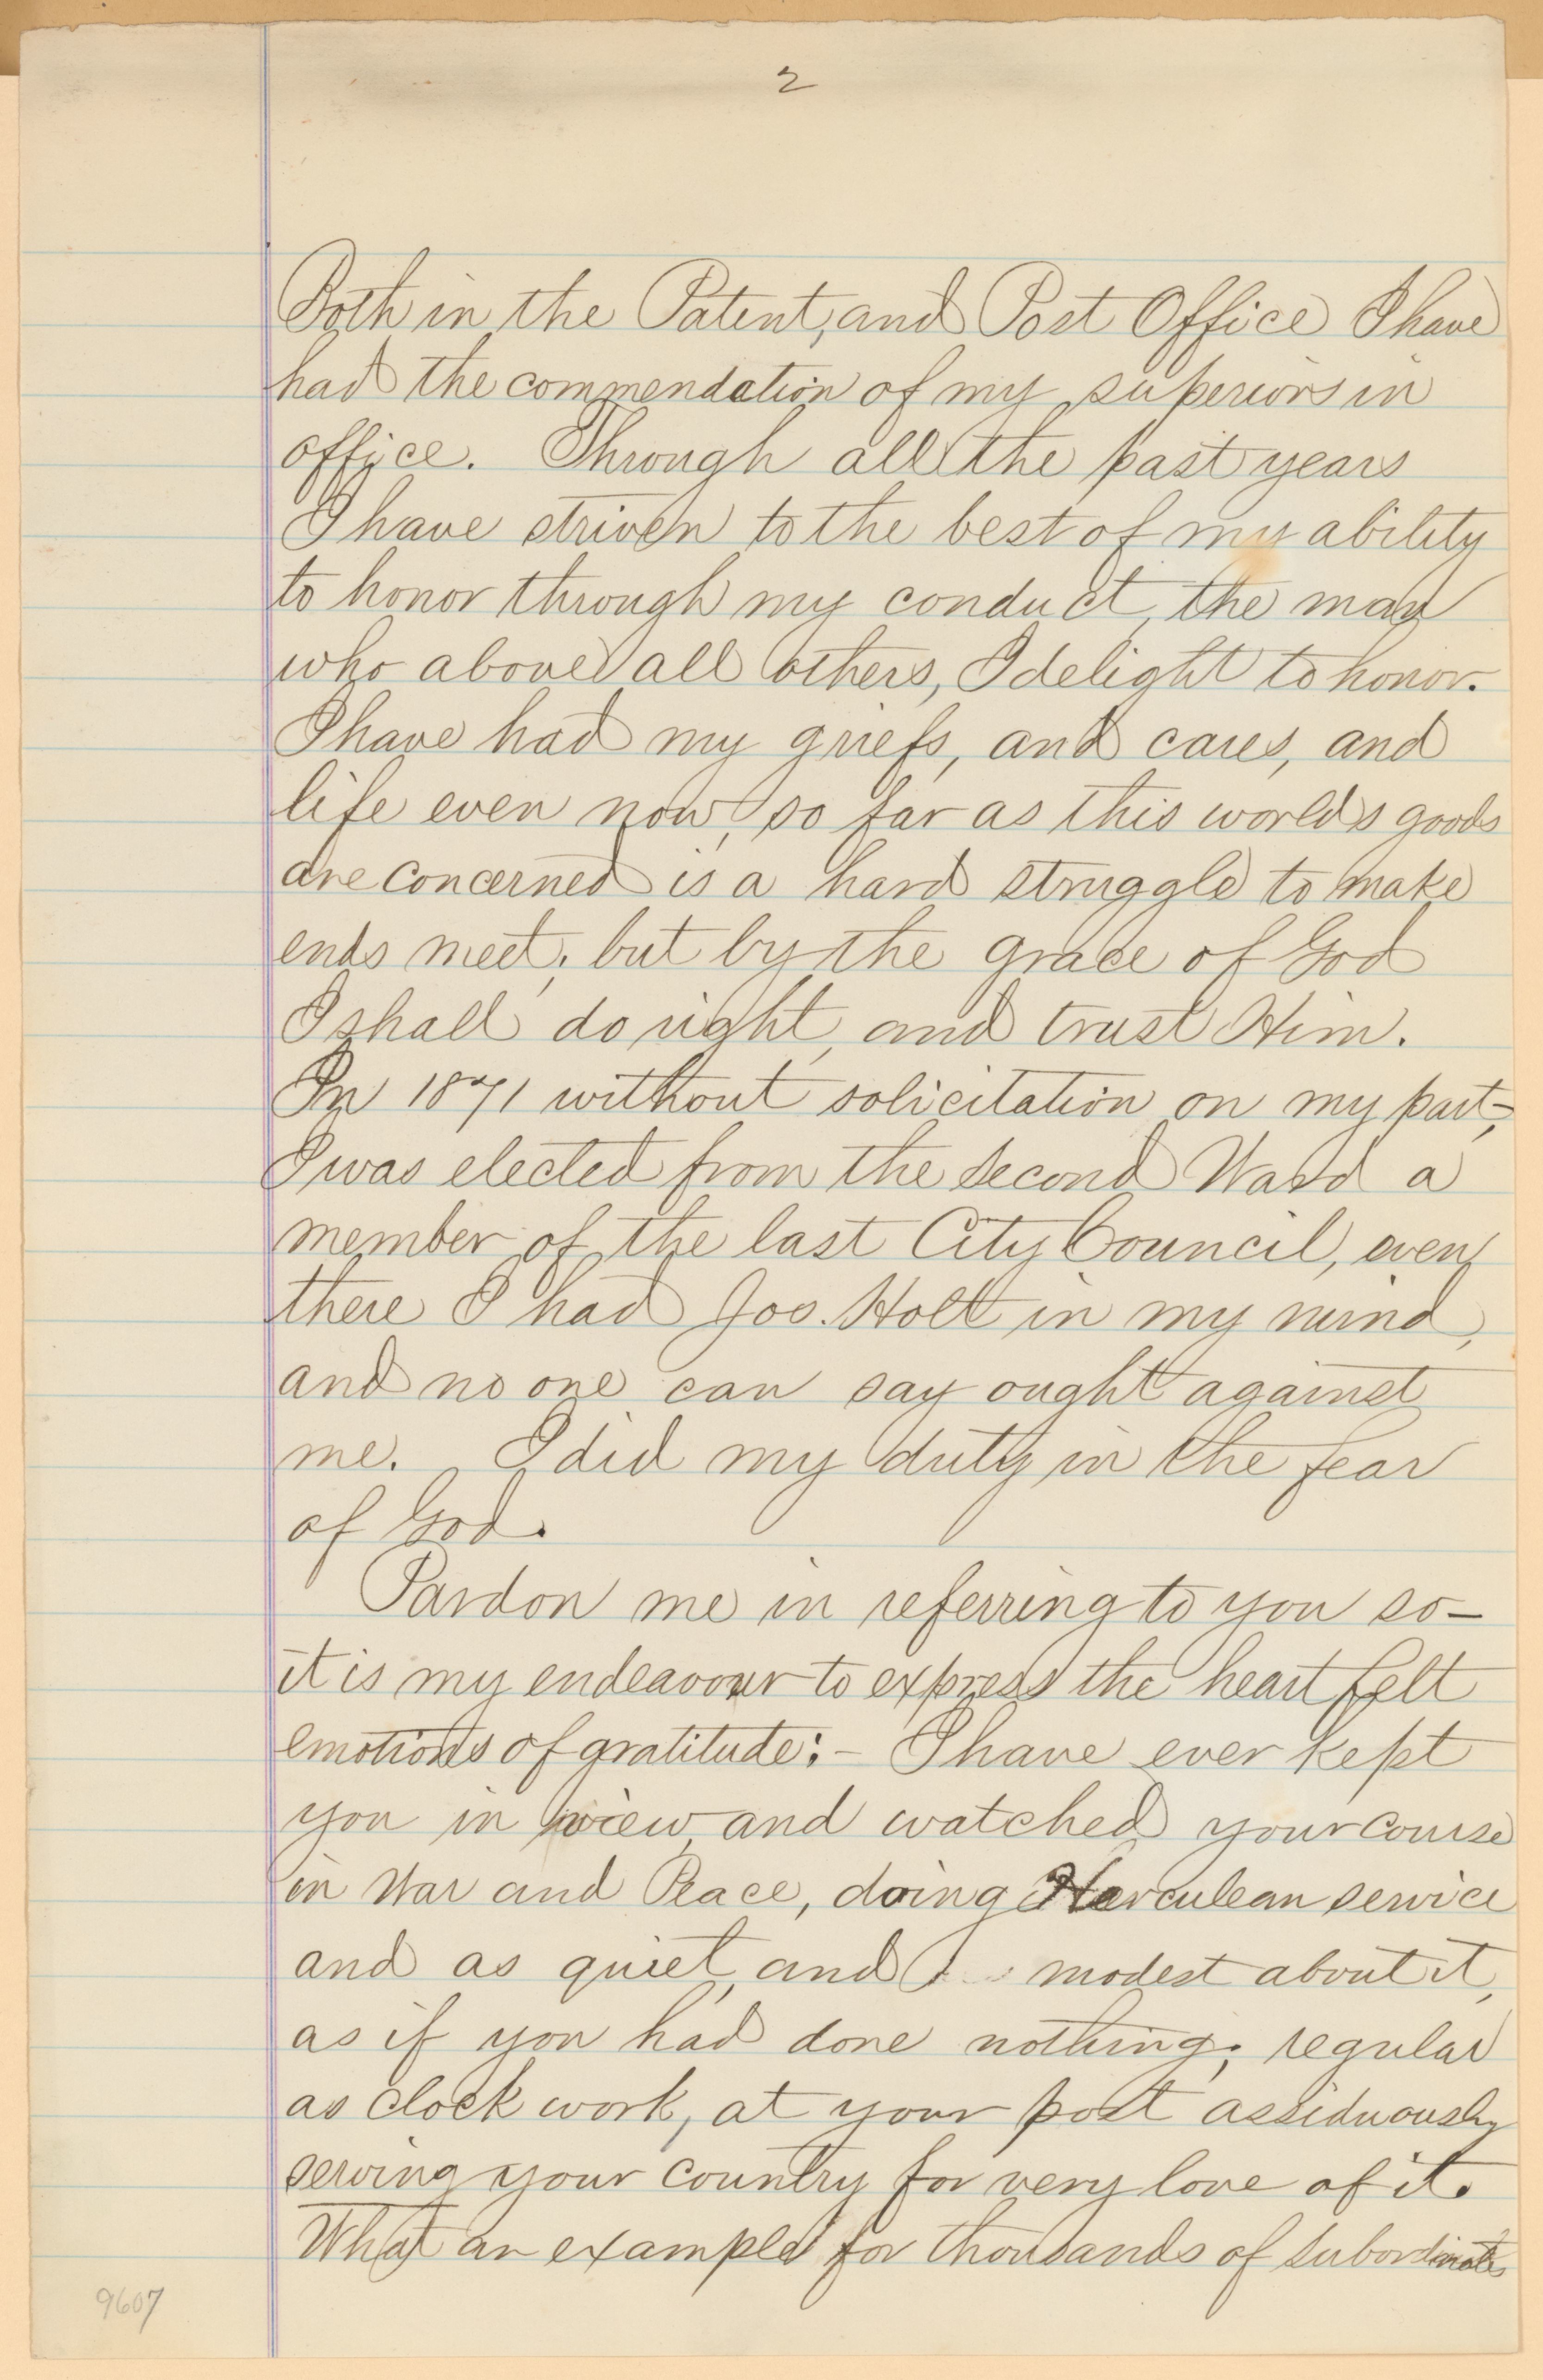 2
Both in the Patent, and Post Office I have
had the commendation of my superiors in
office. Through all the past years
I have striven to the best of my ability
to honor through my conduct, the man
who above all others, I delight to honor.
I have had my griefs, and cares, and
life even now, so far as this world's goods
are concerned is a hard struggle to make
ends meet; but by the grace of God
I shall do right, and trust Him.
In 1871 without solicitation on my part,
I was elected from the Second Ward a
member of the last City Council, even
there I had Jos. Holt in my mind,
and no one can say ought against
me. I did my duty in the fear
of God.
Pardon me in referring to you so—
it is my endeavour to express the heart felt
emotions of gratitude:— I have ever kept
you in view, and watched your course
in War and Peace, doing Herculean service
and as quiet, and modest about it,
as if you had done nothing; regular
as clock work, at your post assiduously
serving your country for very love of it.
What an example for thousands of subordinates
9607